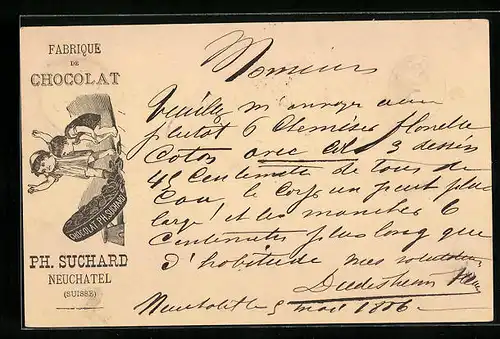 FABRIQUE
DE
CHOCOLAT
CHOCOLAT PH. SUCHARD
PH. SUCHARD
NEUCHATEL
(SUISSE)
Monsieur
Veuillez m'envoyer au
plutot 6 Chemises flanelle
Coton avec 3 dessins
45 Centimetre de tour de
Cou, le Corps un peut plus
large! et les manches 6
Centimetres plus long que
d'habitude mes salutations
Diedesheim
Neuchatel le 5 mai 1886